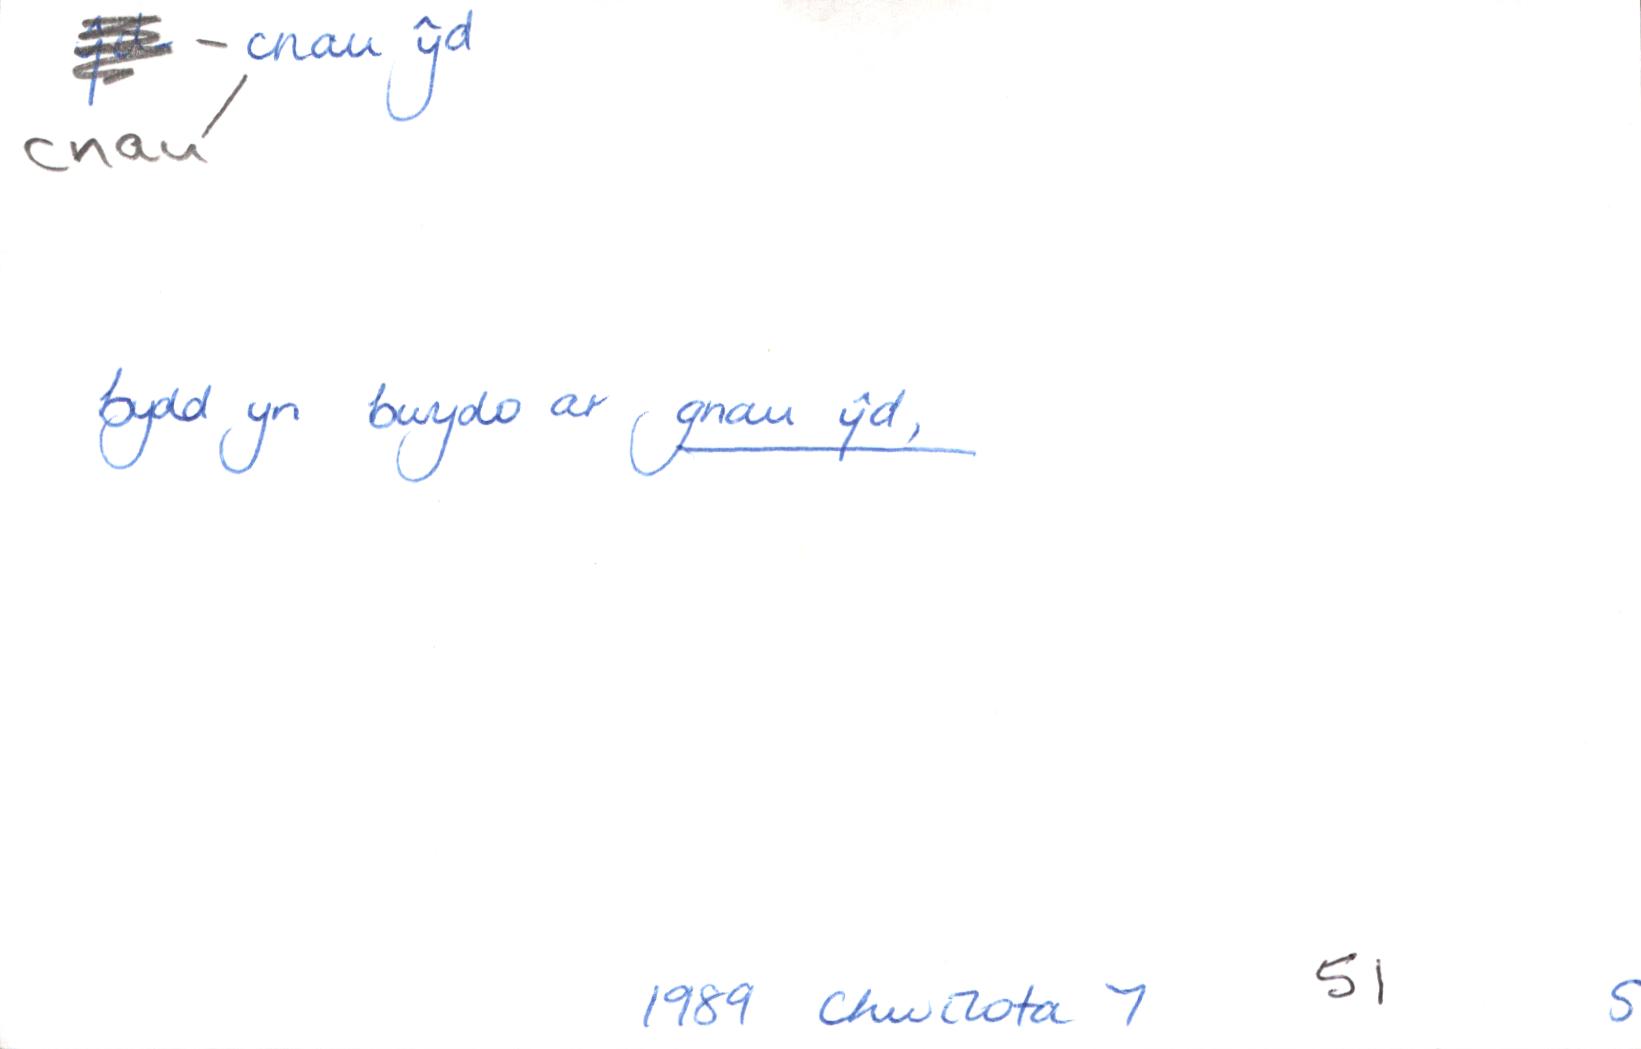 – cnau ŷd
cnau
bydd yn bwydo ar gnau ŷd,
1989 Chwilota 7 51 S